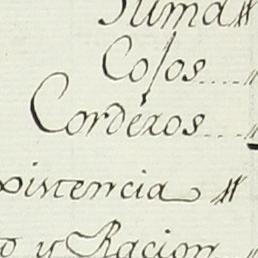 Suma
Cojos
Corderos
xistencia
o y Racion